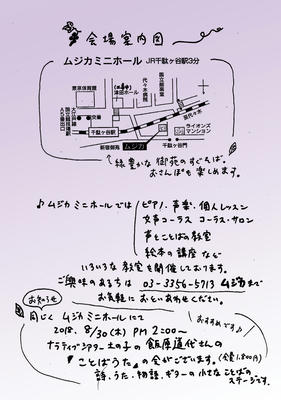 会場案内図
ムジカミニホール JR千駄ヶ谷駅3分
東京体育館
(工事中)
津田ホール
代々木病院
国立能楽堂
大江戸線
国立競技場駅
A4出口
交番
千駄ヶ谷駅
至代々木
ライオンズマンション
新宿御苑
ムジカ
千駄ヶ谷門
緑豊かな御苑のすぐそば。
おさんぽも楽しめます。
♪ムジカミニホールでは
ピアノ・声楽・個人レッスン
女声コーラス コーラス・サロン
声とことばの教室
絵本の講座 など
いろいろな教室を開催しております。
ご興味のある方は 03-3356-5713 ムジカまで
お気軽にお問いあわせください。
お知らせ
同じく ムジカミニホールにて
おすすめです♪
2018. 8/30(木) PM 2:00〜
ナラティブシアター 土の子の 飯原道代さんの
『ことばうた』の会がございます。(会費1,800円)
詩・うた・物語・ギターの小さなことばの
ステージです。